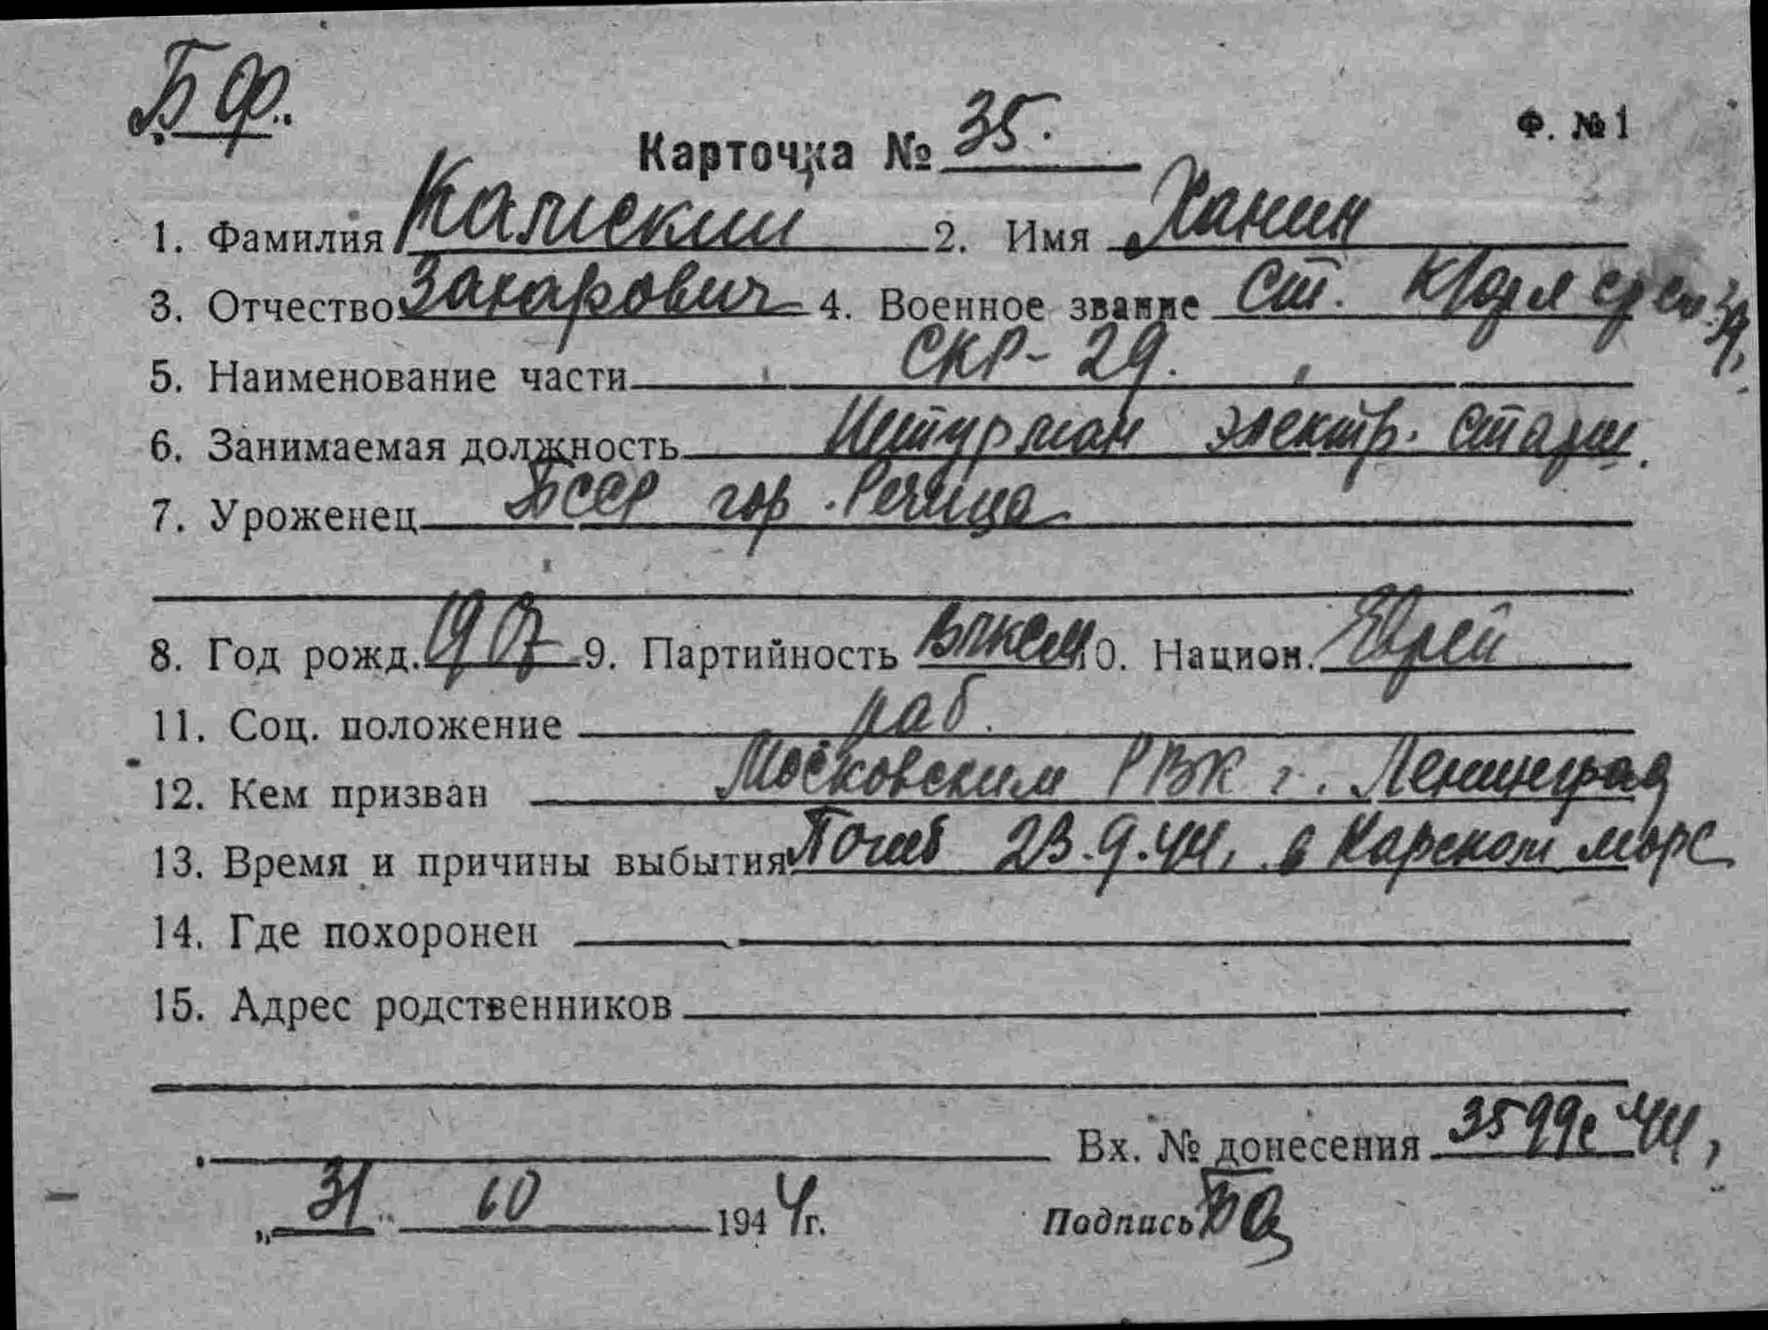 БФ.
Карточка № 35.
Ф. № 1
1. Фамилия Каменский 2. Имя Ханин
3. Отчество Захарович 4. Военное звание Ст.
5. Наименование части СКР-29.
6. Занимаемая должность Штурман электр. старш.
7. Уроженец БССР гор. Речица
8. Год рожд. 1907 9. Партийность 10. Национ. Еврей
11. Соц. положение раб.
12. Кем призван Московским РВК г. Ленинград
13. Время и причины выбытия Погиб 23.9.44, в Карском море
14. Где похоронен
15. Адрес родственников
Вх. № донесения 3599с 44,
„31" 10 1944 г. Подпись